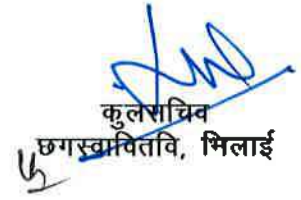 कुलसचिव
छगस्वावितवि, भिलाई